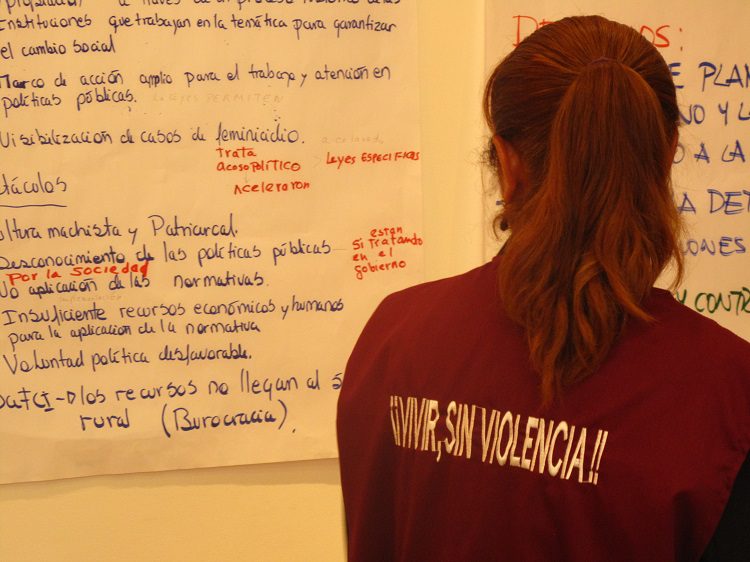 Instituciones que trabajan en la temática para garantizar
el cambio social
Marco de acción amplio para el trabajo y atención en
políticas públicas.
LEYES PERMITEN
Visibilización de casos de feminicidio.
trata
acoso político
Leyes especificas
Aceleraron
táculos
ltura machista y Patriarcal.
Desconocimiento de las políticas públicas
Por la sociedad
están
si tratando
en el
gobierno
No aplicación de las normativas.
Insuficiente recursos económicos y humanos
para la aplicación de la normativa
Voluntad política desfavorable.
los recursos no llegan al
rural (Burocracia).
OS:
E PLA
NO Y L
O A LA
A DET
IONES
Y CONT
¡¡VIVIR, SIN VIOLENCIA!!